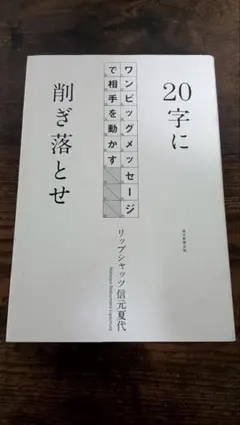 20字に
削ぎ落とせ
ワンビッグメッセージ
で相手を動かす
リップシャッツ信元夏代